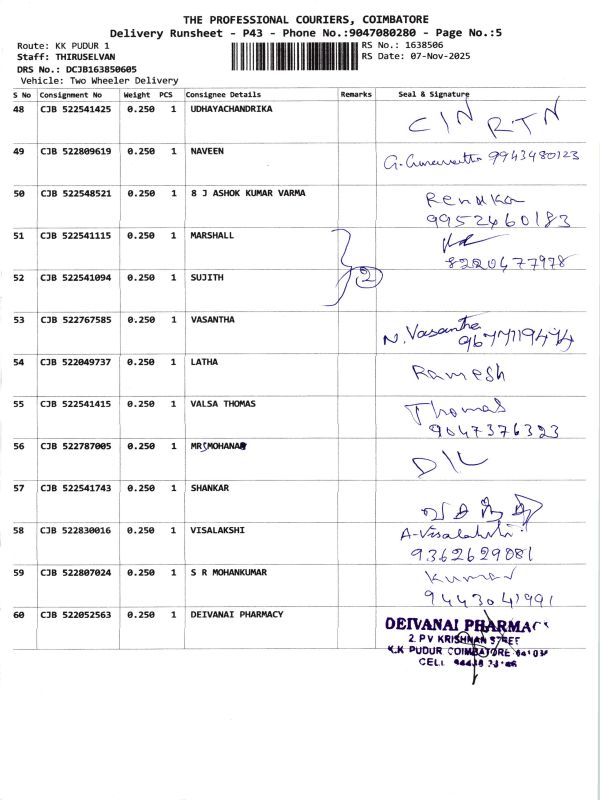 THE PROFESSIONAL COURIERS, COIMBATORE
Delivery Runsheet - P43 - Phone No.:9047080280 - Page No.:5
Route: KK PUDUR 1
RS No.: 1638506
Staff: THIRUSELVAN
RS Date: 07-Nov-2025
DRS No.: DCJB163850605
Vehicle: Two Wheeler Delivery
S No Consignment No Weight PCS Consignee Details Remarks Seal & Signature
48 CJB 522541425 0.250 1 UDHAYACHANDRIKA
C/N RTN
49 CJB 522809619 0.250 1 NAVEEN
9943480123
50 CJB 522548521 0.250 1 8 J ASHOK KUMAR VARMA
Renuka
9952460183
51 CJB 522541115 0.250 1 MARSHALL
8220477978
52 CJB 522541094 0.250 1 SUJITH
2
53 CJB 522767585 0.250 1 VASANTHA
N. Vasantha
54 CJB 522049737 0.250 1 LATHA
Ramesh
55 CJB 522541415 0.250 1 VALSA THOMAS
Thomas
9047376323
56 CJB 522787005 0.250 1 MRSMOHANA
D/L
57 CJB 522541743 0.250 1 SHANKAR
58 CJB 522830016 0.250 1 VISALAKSHI
A-Visalakshi
9362629081
59 CJB 522807024 0.250 1 S R MOHANKUMAR
Kumar
9443041991
60 CJB 522052563 0.250 1 DEIVANAI PHARMACY
DEIVANAI PHARMAC
2. P V KRISHNAN STREET
K.K PUDUR COIMBATORE
CELL